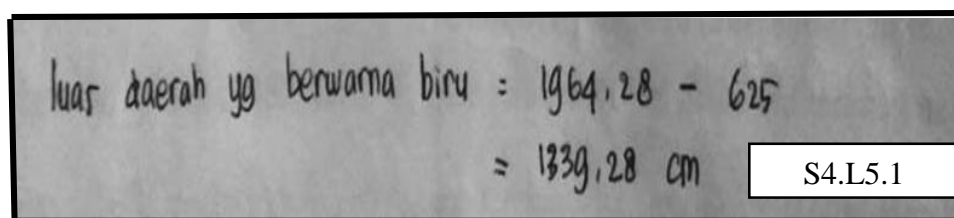 luas daerah yg berwarna biru = 1964,28 - 625
= 1339,28 cm
S4.L5.1